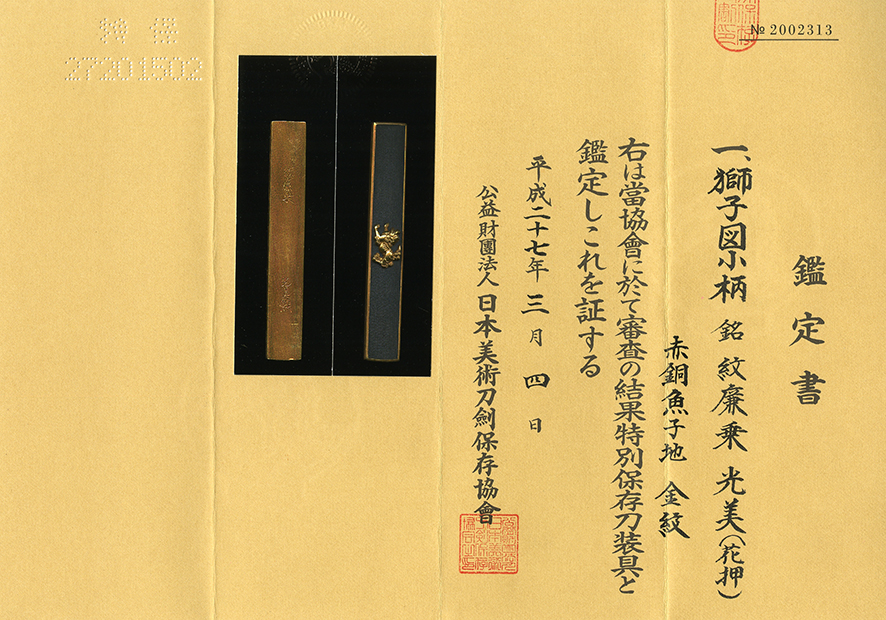 № 2002313
鑑定書
一、獅子図小柄 銘 紋廉乗 光美(花押)
赤銅魚子地 金紋
右は當協會に於て審査の結果特別保存刀装具と
鑑定しこれを証する
平成二十七年三月四日
公益財團法人日本美術刀劍保存協會
特保
27201502